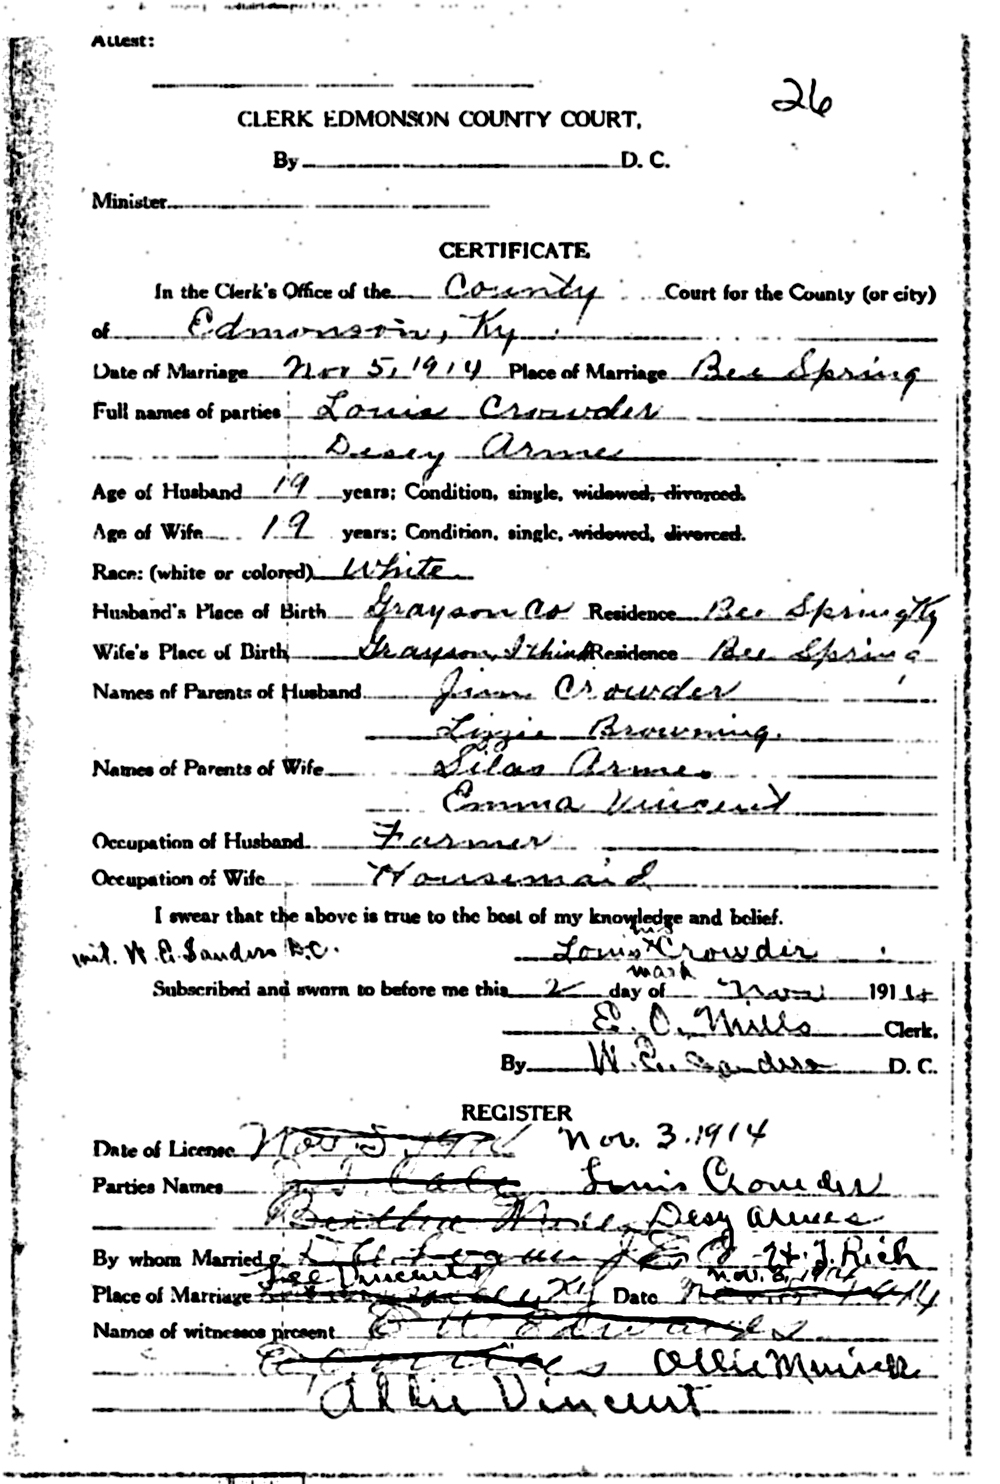 Attest:
26
CLERK EDMONSON COUNTY COURT,
By D. C.
Minister
CERTIFICATE
In the Clerk's Office of the County Court for the County (or city)
of Edmonson, Ky
Date of Marriage Nov 5, 1914 Place of Marriage Bee Spring
Full names of parties Louis Crowder
Desey Arme
Age of Husband 19 years; Condition, single, widowed, divorced.
Age of Wife 19 years; Condition, single, widowed, divorced.
Race: (white or colored) White
Husband's Place of Birth Grayson Co Residence Bee Spring Ky
Wife's Place of Birth Grayson, I think Residence Bee Spring
Names of Parents of Husband Jim Crowder
Lizzie Browning.
Names of Parents of Wife Silas Armes
Emma Vincent
Occupation of Husband Farmer
Occupation of Wife Housemaid
I swear that the above is true to the best of my knowledge and belief.
his
wit. W. E. Sanders D.C. Louis x Crowder
mark
Subscribed and sworn to before me this 2 day of Nov 1914
E. O. Mills Clerk.
By W. E. Sanders D. C.
REGISTER
Date of License Nov. 3. 1914
Parties Names Louis Crowder
Desy Armes
By whom Married H. J. Rich
Lee Vincents Nov. 8, 1914
Place of Marriage Ky Date 1914
Names of witnesses present
Ollie
Allie Vincent